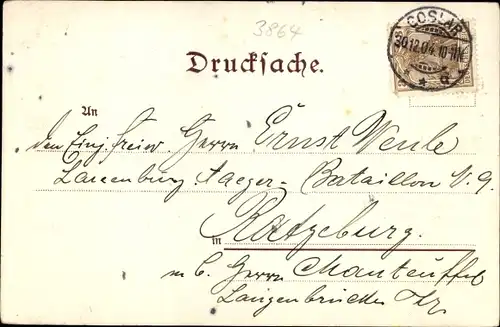 3864
GOSLAR
30.12.04. 10-11N.
Drucksache.
An
den Einj. freiw. Herrn Ernst Wenle
Lauenburg. Jaeger-Bataillon N. 9
in Ratzeburg.
m b. Herrn Manteuffel
Langenbrücker Str.